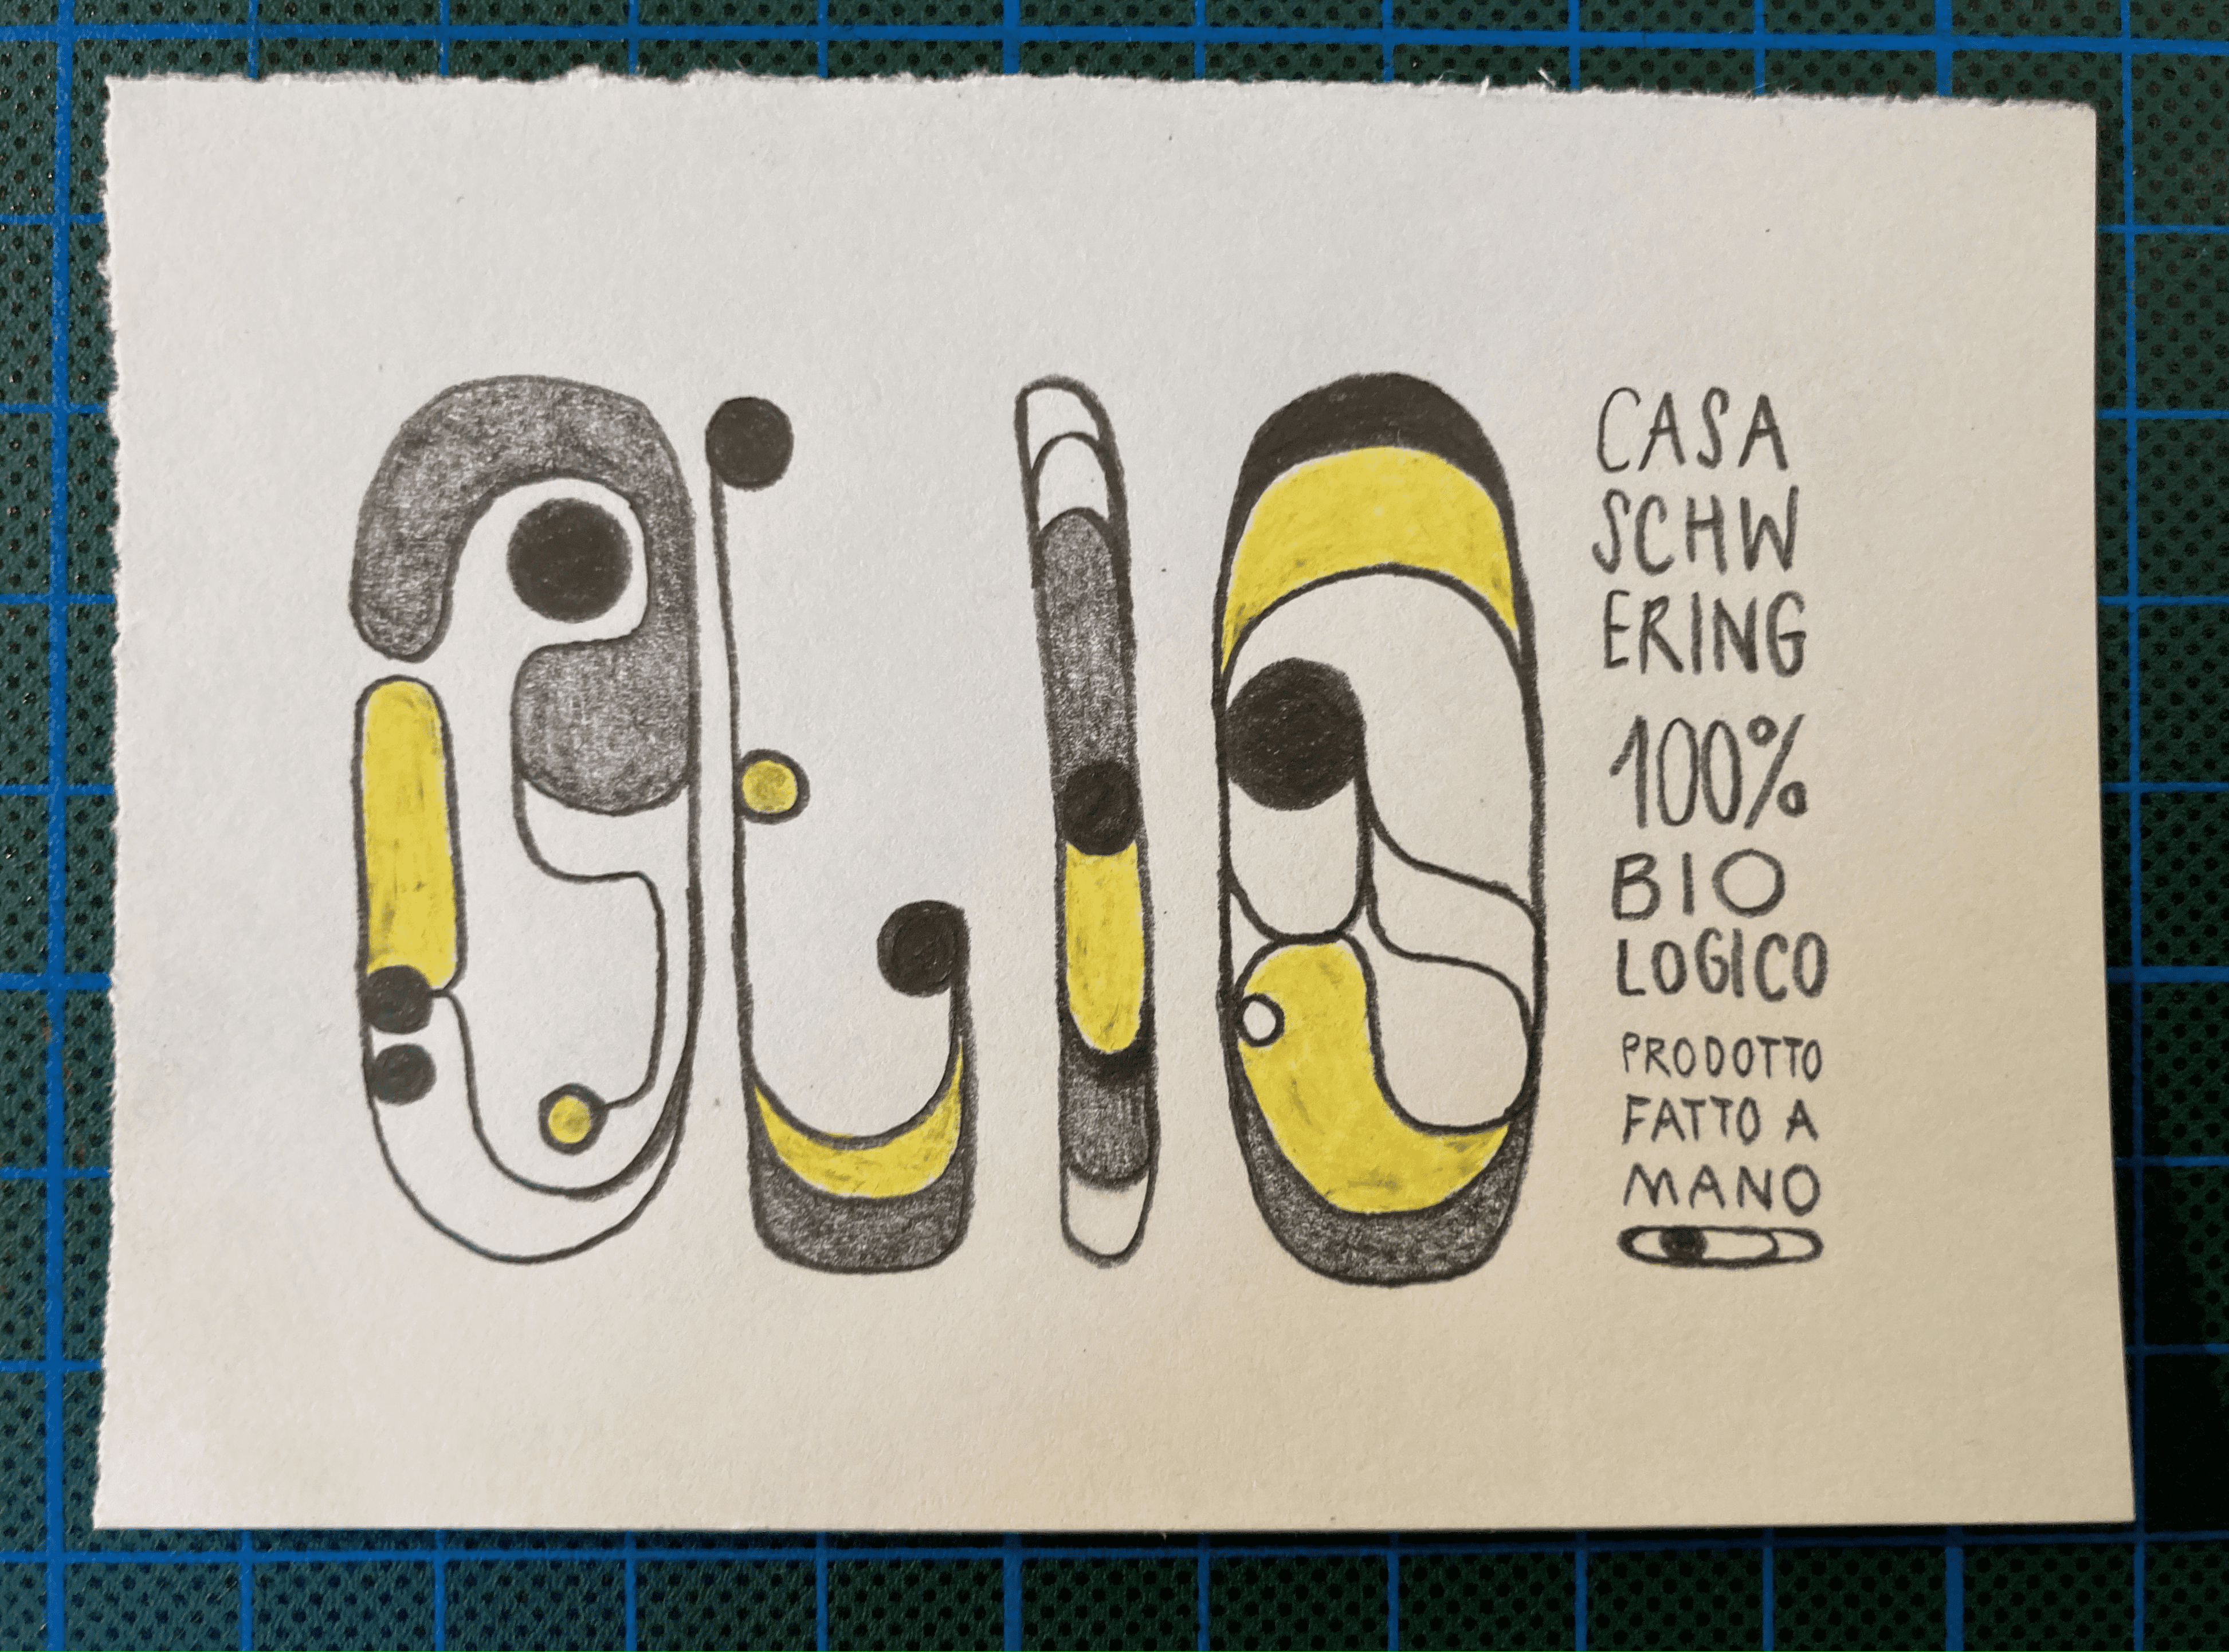 OLIO
CASA
SCHW
ERING
100%
BIO
LOGICO
PRODOTTO
FATTO A
MANO